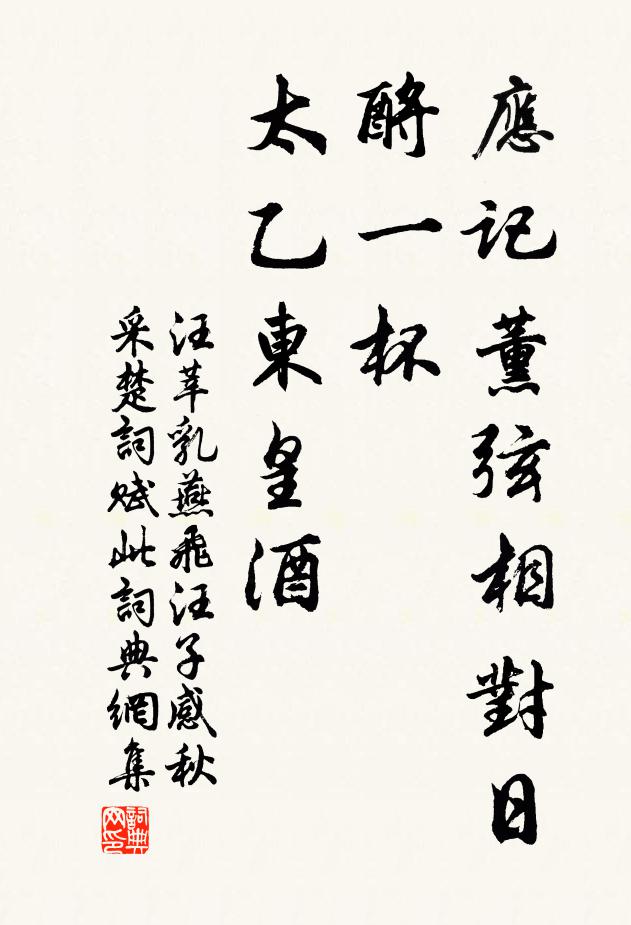 應記薰弦相對日
酹一杯
太乙東皇酒
汪莘乳燕飛汪子感秋
采楚詞賦此詞典網集
詞典
网印